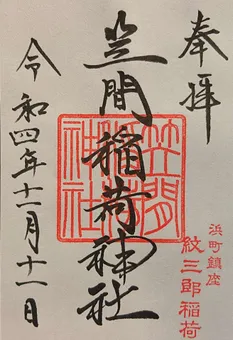 奉拝
笠間稲荷神社
笠間
稲荷
神社
浜町鎮座
紋三郎稲荷
令和四年十二月十一日